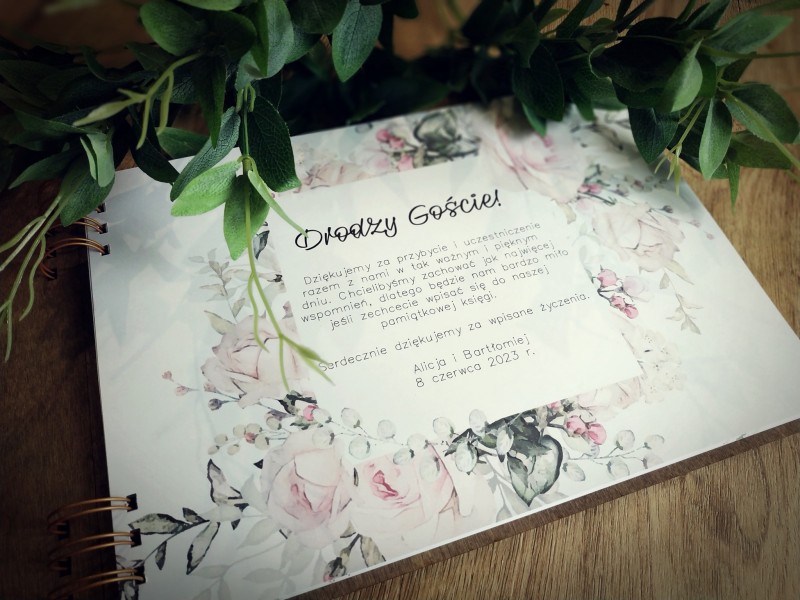 Drodzy Goście!
Dziękujemy za przybycie i uczestniczenie
razem z nami w tak ważnym i pięknym
dniu. Chcielibyśmy zachować jak najwięcej
wspomnień, dlatego będzie nam bardzo miło
jeśli zechcecie wpisać się do naszej
pamiątkowej księgi.
Serdecznie dziękujemy za wpisane życzenia.
Alicja i Bartłomiej
8 czerwca 2023 r.